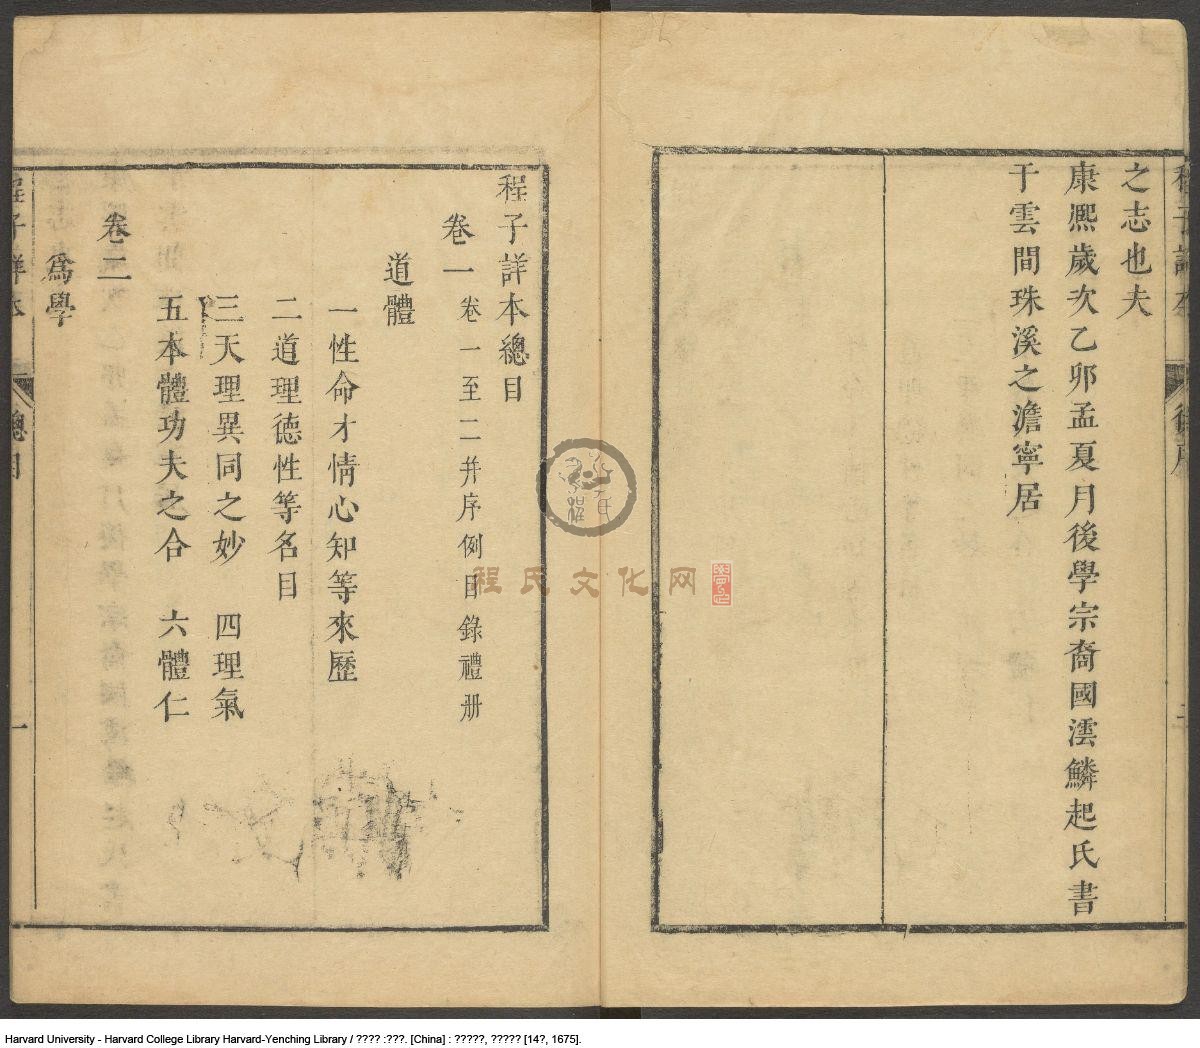 之志也夫
康熈歲次乙卯孟夏月後學宗裔國澐鱗起氏書
于雲間珠溪之澹寧居
程子詳本總目
卷一 卷一至二并序例目錄禮册
道體
一性命才情心知等來歷
二道理德性等名目
三天理異同之妙 四理氣
五本體功夫之合 六體仁
卷二
爲學
程子詳本 總目 一
程氏文化网
Harvard University - Harvard College Library Harvard-Yenching Library / ???? :???. [China] : ?????, ????? [14?, 1675].